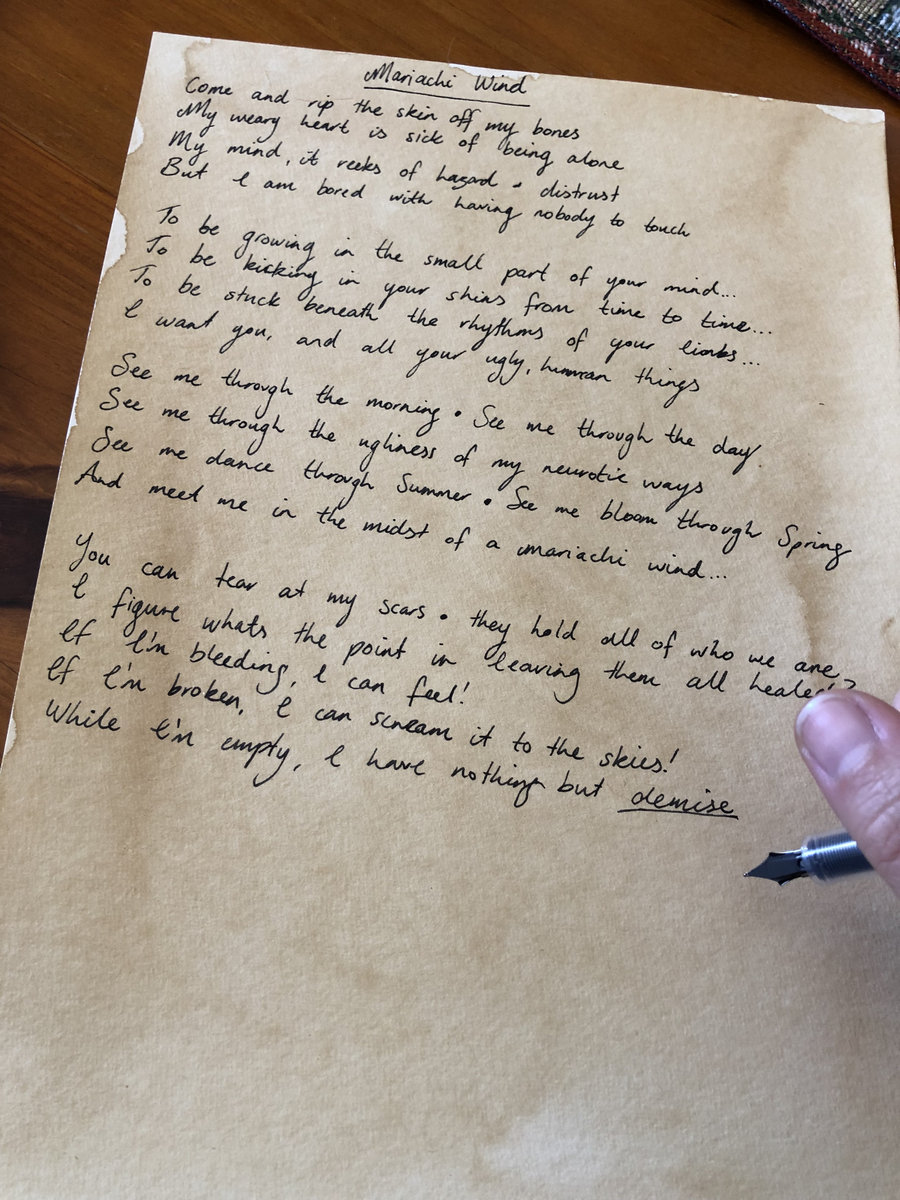 Mariachi Wind
Come and rip the skin off my bones
My weary heart is sick of being alone
My mind, it reeks of hazard • distrust
But I am bored with having nobody to touch
To be growing in the small part of your mind...
To be kicking in your shins from time to time...
To be stuck beneath the rhythms of your limbs...
I want you, and all your ugly, human things
See me through the morning • See me through the day.
See me through the ugliness of my neurotic ways
See me dance through Summer • See me bloom through Spring
And meet me in the midst of a mariachi wind...
You can tear at my scars • they hold all of who we are
I figure whats the point in leaving them all healed?
If I'm bleeding, I can feel!
If I'm broken, I can scream it to the skies!
While I'm empty, I have nothing but demise